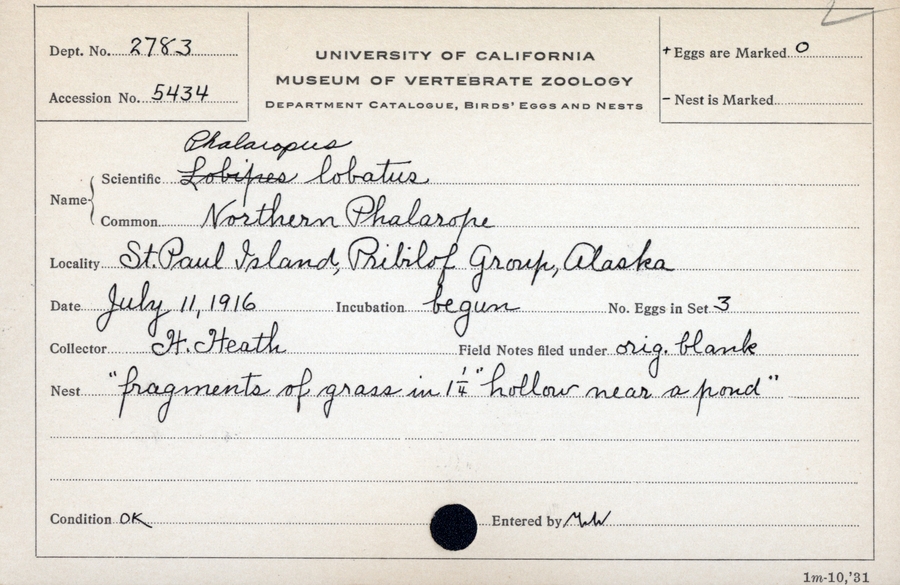 Dept. No. 2783
UNIVERSITY OF CALIFORNIA
MUSEUM OF VERTEBRATE ZOOLOGY
DEPARTMENT CATALOGUE, BIRDS' EGGS AND NESTS
+ Eggs are Marked 0
Accession No. 5434
- Nest is Marked
Phalaropus
Name Scientific Lobipes lobatus
Common Northern Phalarope
Locality St. Paul Island, Pribilof Group, Alaska
Date July 11, 1916 Incubation begun No. Eggs in Set 3
Collector H. Heath Field Notes filed under orig. blank
Nest "fragments of grass in 1¼" hollow near a pond"
Condition OK Entered by
1m-10,'31